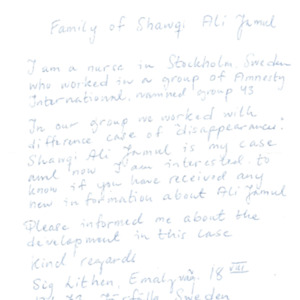 Family of Shawqi Ali Jamul
I am a nurse in Stockholm Sweden
who worked in a group of Amnesty
International, named group 43
In our group we worked with
difference case of "disappearance".
Shawqi Ali Jamul is my case
and now I am interested to
know if you have received any
new information about Ali Jamul
Please informed me about the
development in this case
Kind regards
Sig Lithen, 18 VIII
Sweden